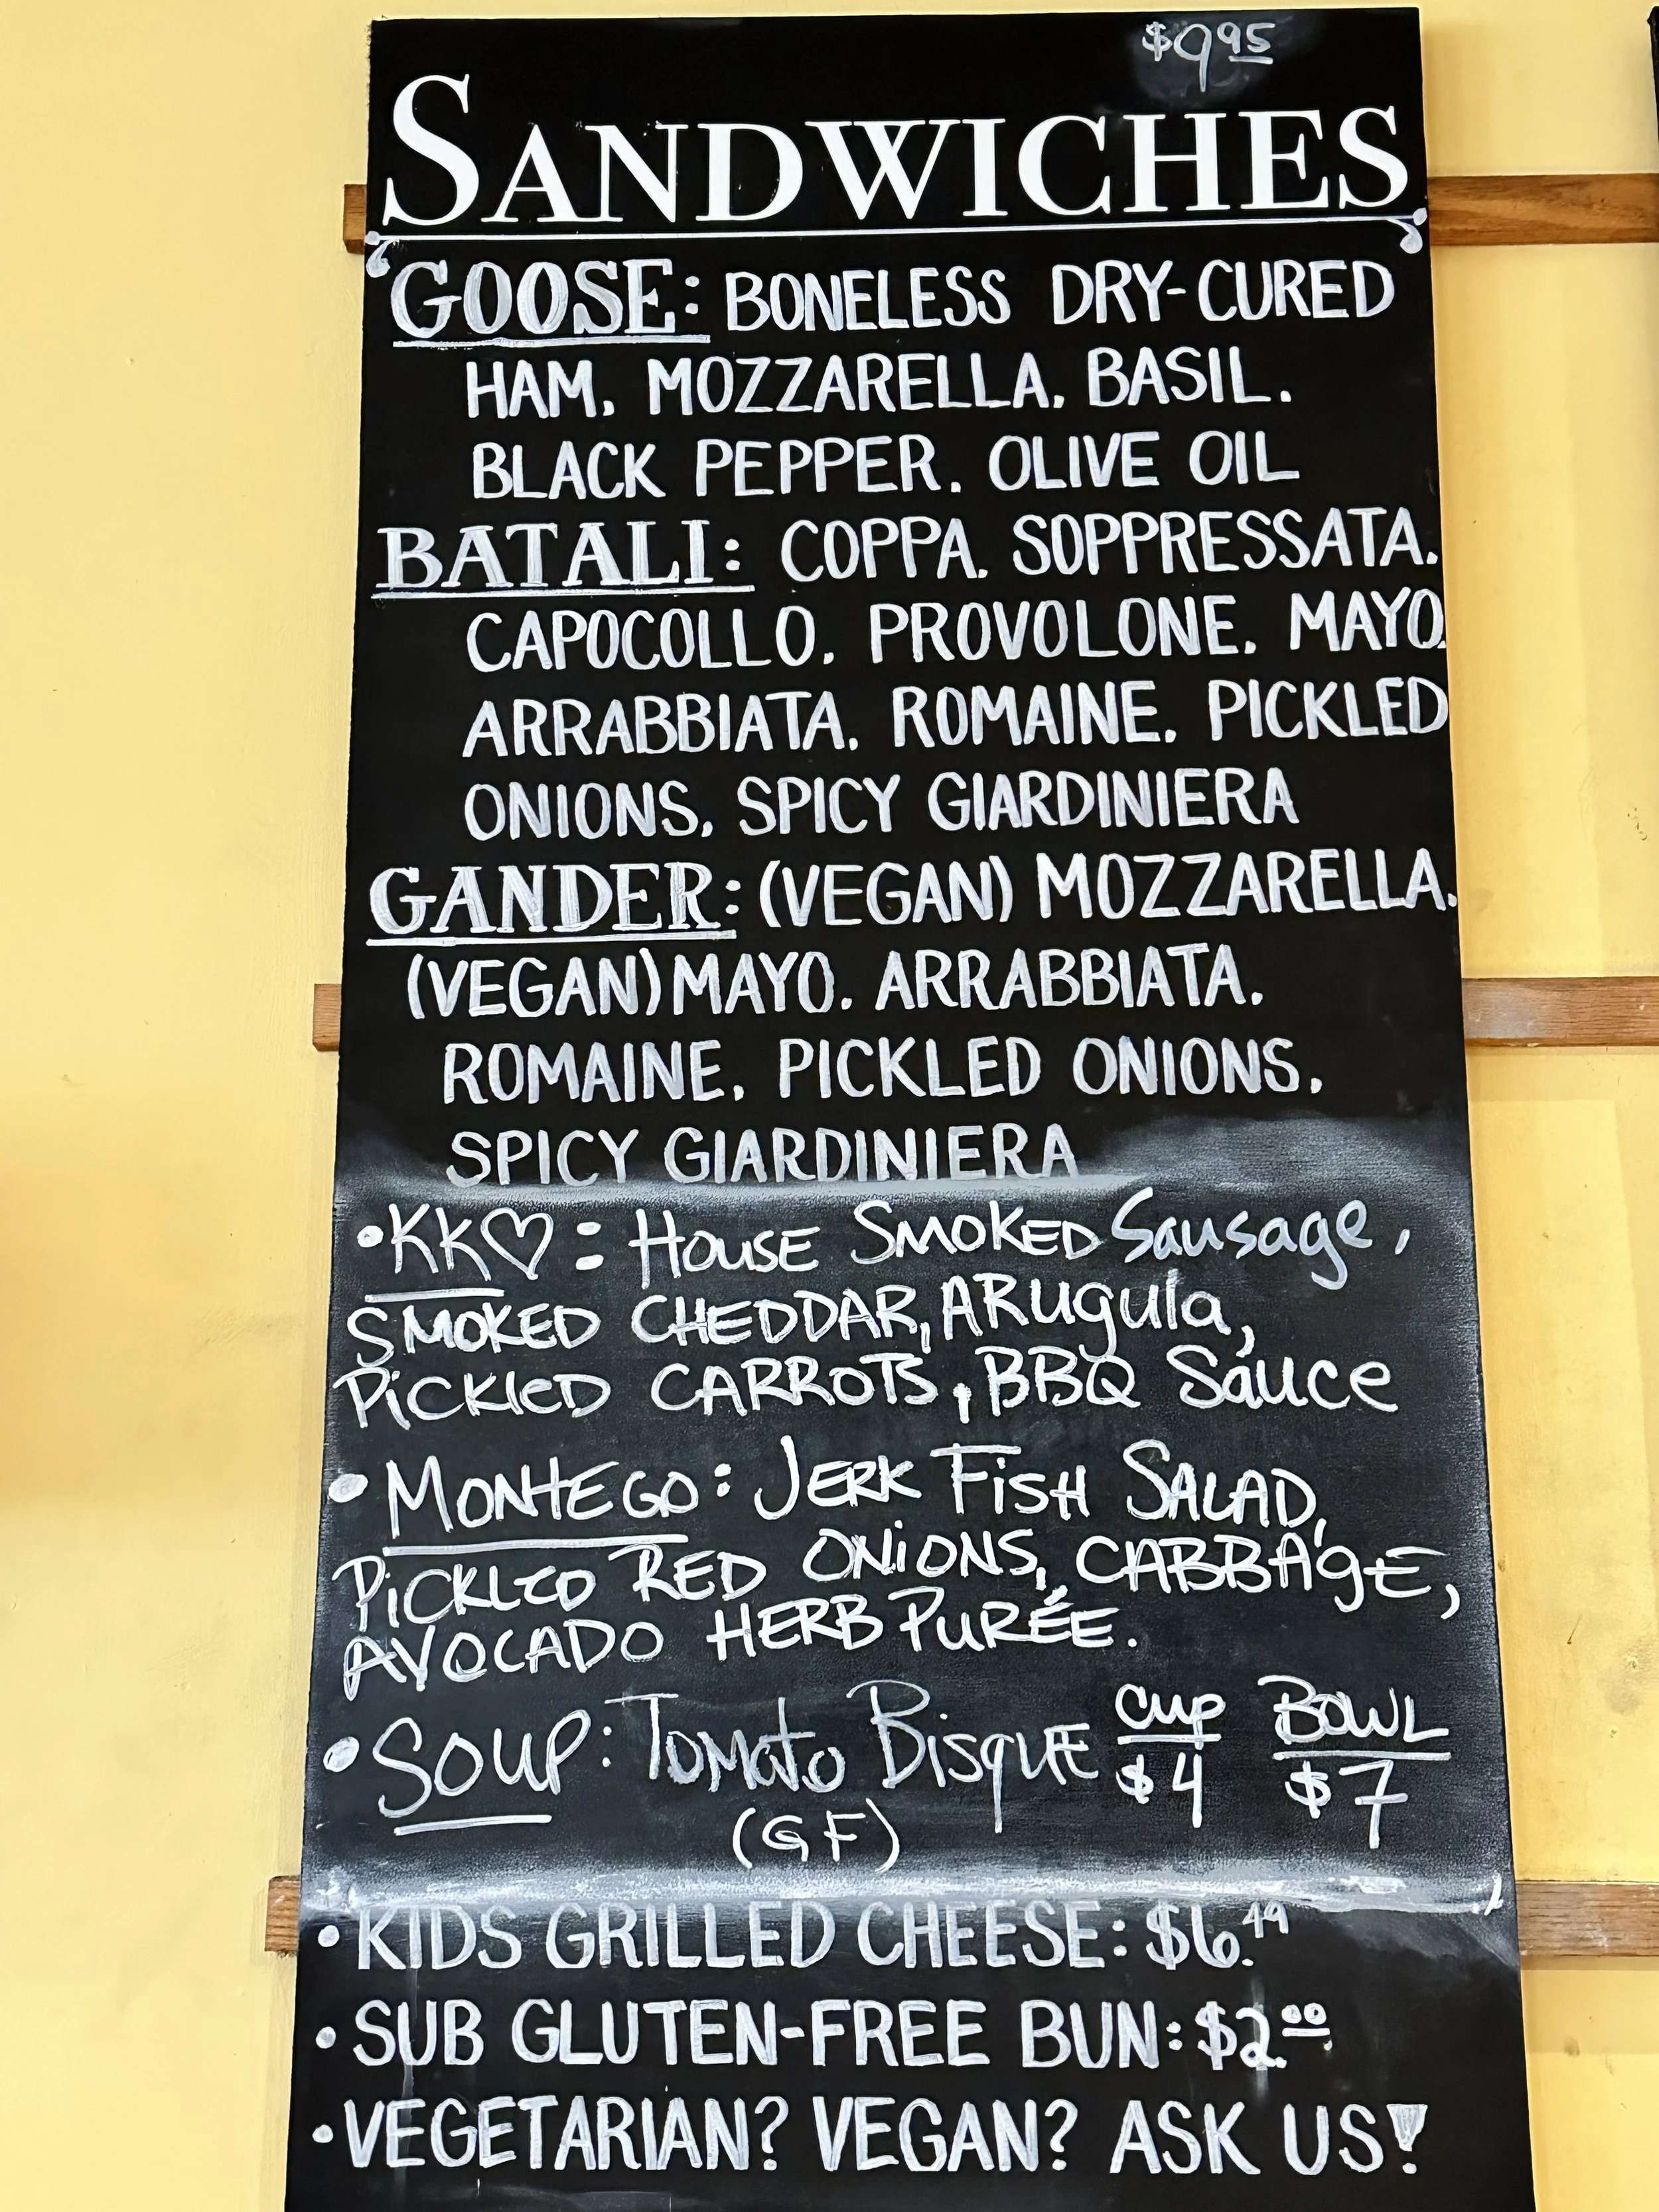 $9.95
SANDWICHES
GOOSE: BONELESS DRY-CURED
HAM, MOZZARELLA, BASIL,
BLACK PEPPER, OLIVE OIL
BATALI: COPPA, SOPPRESSATA,
CAPOCOLLO, PROVOLONE, MAYO,
ARRABBIATA, ROMAINE, PICKLED
ONIONS, SPICY GIARDINIERA
GANDER: (VEGAN) MOZZARELLA,
(VEGAN) MAYO, ARRABBIATA,
ROMAINE, PICKLED ONIONS,
SPICY GIARDINIERA
•KK♡: HOUSE SMOKED Sausage,
SMOKED CHEDDAR, ARugula,
PiCKlED CARROTS, BBQ Sauce
• MONTEGO: JERK FiSH SALAD,
PiCKLED RED ONiONS, CABBAgE,
AVOCADO HERB PURÉE.
• SOUP: TOMato BisqUE cup BOWL
$4 $7
(GF)
• KIDS GRILLED CHEESE: $6.49
• SUB GLUTEN-FREE BUN: $2.00
• VEGETARIAN? VEGAN? ASK US!